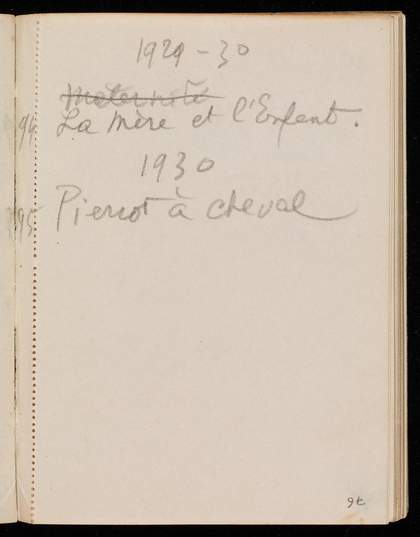 1929-30
Maternité
94 La Mère et l'Enfant.
1930
95 Pierrot à cheval